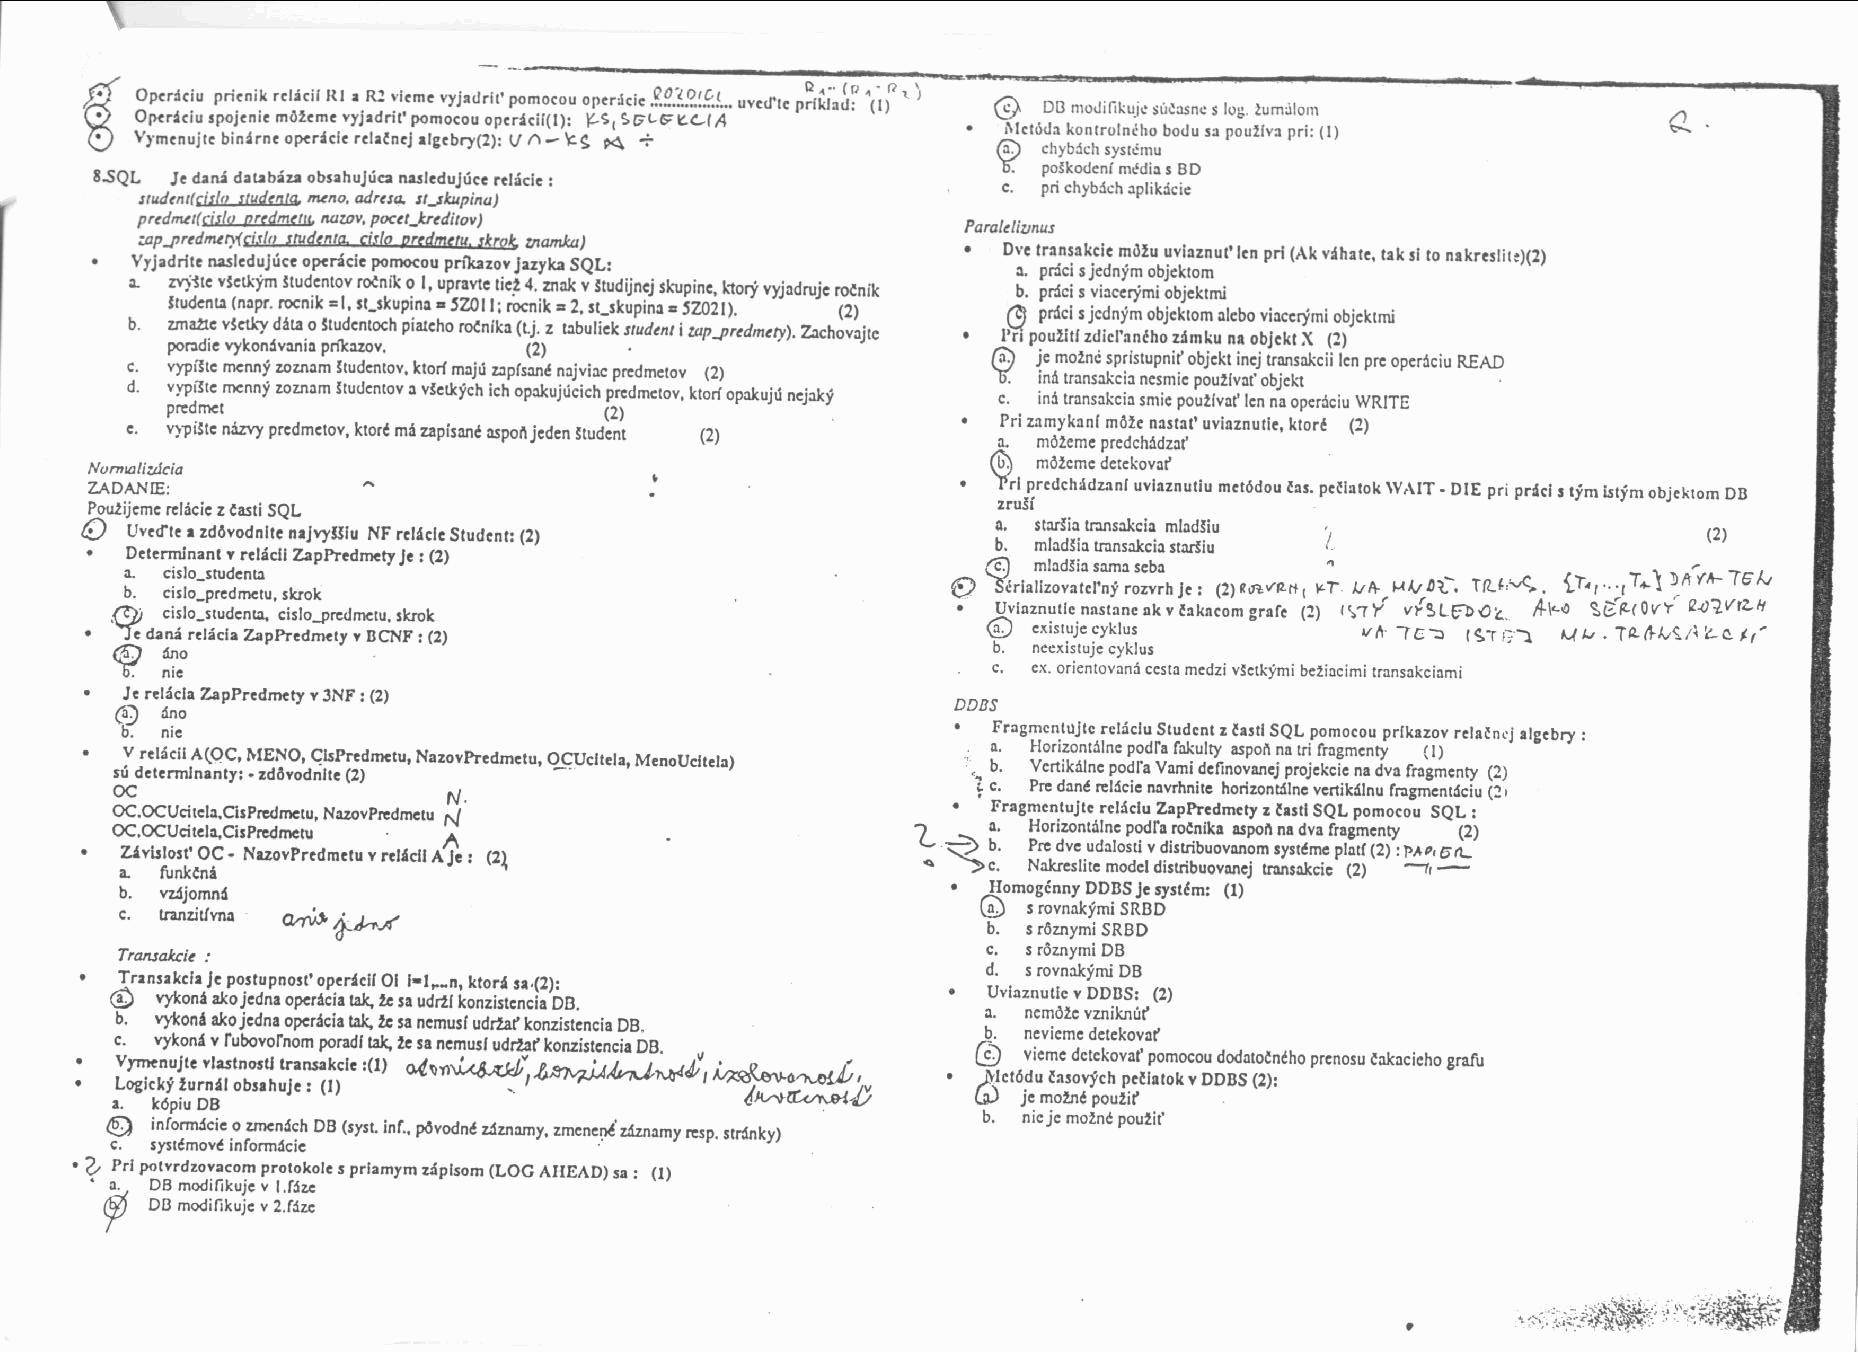 Operáciu prienik relácií R1 a R2 vieme vyjadriť pomocou operácie ROZDIEL uveďte príklad: (1) R1-(R1-R2)
Operáciu spojenie môžeme vyjadriť pomocou operácií(1): KS, SELEKCIA
Vymenujte binárne operácie relačnej algebry(2): U ∩ - KS ⋈ ÷
8.SQL Je daná databáza obsahujúca nasledujúce relácie :
student(cislo_studenta, meno, adresa, st_skupina)
predmet(cislo_predmetu, nazov, pocet_kreditov)
zap_predmety(cislo_studenta, cislo_predmetu, skrok, znamka)
• Vyjadrite nasledujúce operácie pomocou príkazov jazyka SQL:
a. zvýšte všetkým študentov ročník o 1, upravte tiež 4. znak v študijnej skupine, ktorý vyjadruje ročník
študenta (napr. rocnik =1, st_skupina = 5Z011; rocnik = 2, st_skupina = 5Z021). (2)
b. zmažte všetky dáta o študentoch piateho ročníka (t.j. z tabuliek student i zap_predmety). Zachovajte
poradie vykonávania príkazov. (2)
c. vypíšte menný zoznam študentov, ktorí majú zapísané najviac predmetov (2)
d. vypíšte menný zoznam študentov a všetkých ich opakujúcich predmetov, ktorí opakujú nejaký
predmet (2)
e. vypíšte názvy predmetov, ktoré má zapísané aspoň jeden študent (2)
Normalizácia
ZADANIE:
Použijeme relácie z časti SQL
Uveďte a zdôvodnite najvyššiu NF relácie Student: (2)
• Determinant v relácii ZapPredmety je : (2)
a. cislo_studenta
b. cislo_predmetu, skrok
c. cislo_studenta, cislo_predmetu, skrok
• Je daná relácia ZapPredmety v BCNF : (2)
a. áno
b. nie
• Je relácia ZapPredmety v 3NF : (2)
a. áno
b. nie
• V relácii A(OC, MENO, CisPredmetu, NazovPredmetu, OCUcitela, MenoUcitela)
sú determinanty: - zdôvodnite (2)
OC N.
OC,OCUcitela,CisPredmetu, NazovPredmetu N
OC,OCUcitela,CisPredmetu A
• Závislosť OC - NazovPredmetu v relácii A je : (2)
a. funkčná
b. vzájomná
c. tranzitívna ani jedno
Transakcie :
• Transakcia je postupnosť operácií Oi i=1,...n, ktorá sa (2):
a. vykoná ako jedna operácia tak, že sa udrží konzistencia DB.
b. vykoná ako jedna operácia tak, že sa nemusí udržať konzistencia DB.
c. vykoná v ľubovoľnom poradí tak, že sa nemusí udržať konzistencia DB.
• Vymenujte vlastnosti transakcie :(1) atomickosť, konzistentnosť, izolovanosť,
trvácnosť
• Logický žurnál obsahuje : (1)
a. kópiu DB
b. informácie o zmenách DB (syst. inf., pôvodné záznamy, zmenené záznamy resp. stránky)
c. systémové informácie
• ? Pri potvrdzovacom protokole s priamym zápisom (LOG AHEAD) sa : (1)
a. DB modifikuje v 1.fáze
b. DB modifikuje v 2.fáze
c. DB modifikuje súčasne s log. žurnálom
• Metóda kontrolného bodu sa používa pri: (1)
a. chybách systému
b. poškodení média s BD
c. pri chybách aplikácie
Paralelizmus
• Dve transakcie môžu uviaznuť len pri (Ak váhate, tak si to nakreslite)(2)
a. práci s jedným objektom
b. práci s viacerými objektmi
c. práci s jedným objektom alebo viacerými objektmi
• Pri použití zdieľaného zámku na objekt X (2)
a. je možné sprístupniť objekt inej transakcii len pre operáciu READ
b. iná transakcia nesmie používať objekt
c. iná transakcia smie používať len na operáciu WRITE
• Pri zamykaní môže nastať uviaznutie, ktoré (2)
a. môžeme predchádzať
b. môžeme detekovať
• Pri predchádzaní uviaznutiu metódou čas. pečiatok WAIT - DIE pri práci s tým istým objektom DB
zruší
a. staršia transakcia mladšiu (2)
b. mladšia transakcia staršiu
c. mladšia sama seba
Sérializovateľný rozvrh je : (2) ROZVRH, KT. NA MNOŽ. TRANS. {T1,...,Tn} DÁVA TEN
ISTÝ VÝSLEDOK AKO SÉRIOVÝ ROZVRH
NA TEJ ISTEJ MN. TRANSAKCIÍ
• Uviaznutie nastane ak v čakacom grafe (2)
a. existuje cyklus
b. neexistuje cyklus
c. ex. orientovaná cesta medzi všetkými bežiacimi transakciami
DDBS
• Fragmentujte reláciu Student z časti SQL pomocou príkazov relačnej algebry :
a. Horizontálne podľa fakulty aspoň na tri fragmenty (1)
b. Vertikálne podľa Vami definovanej projekcie na dva fragmenty (2)
c. Pre dané relácie navrhnite horizontálne vertikálnu fragmentáciu (2)
• Fragmentujte reláciu ZapPredmety z časti SQL pomocou SQL :
a. Horizontálne podľa ročníka aspoň na dva fragmenty (2)
b. Pre dve udalosti v distribuovanom systéme platí (2) : PAPIER
c. Nakreslite model distribuovanej transakcie (2) —"—
• Homogénny DDBS je systém: (1)
a. s rovnakými SRBD
b. s rôznymi SRBD
c. s rôznymi DB
d. s rovnakými DB
• Uviaznutie v DDBS: (2)
a. nemôže vzniknúť
b. nevieme detekovať
c. vieme detekovať pomocou dodatočného prenosu čakacieho grafu
• Metódu časových pečiatok v DDBS (2):
a. je možné použiť
b. nie je možné použiť